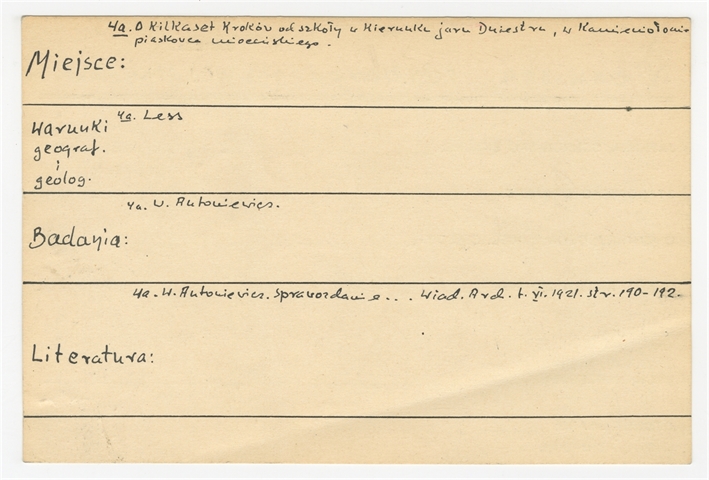 4a. O kilkaset kroków od szkoły w kierunku jaru Dniestru, w kamieniołomie
piaskowca mioceńskiego.
Miejsce:
4a. Less
Warunki
geograf.
i
geolog.
4a. W. Antoniewicz.
Badania:
4a. W. Antoniewicz. Sprawozdanie... Wiad. Arch. t. VI. 1921. str. 190-192.
Literatura: